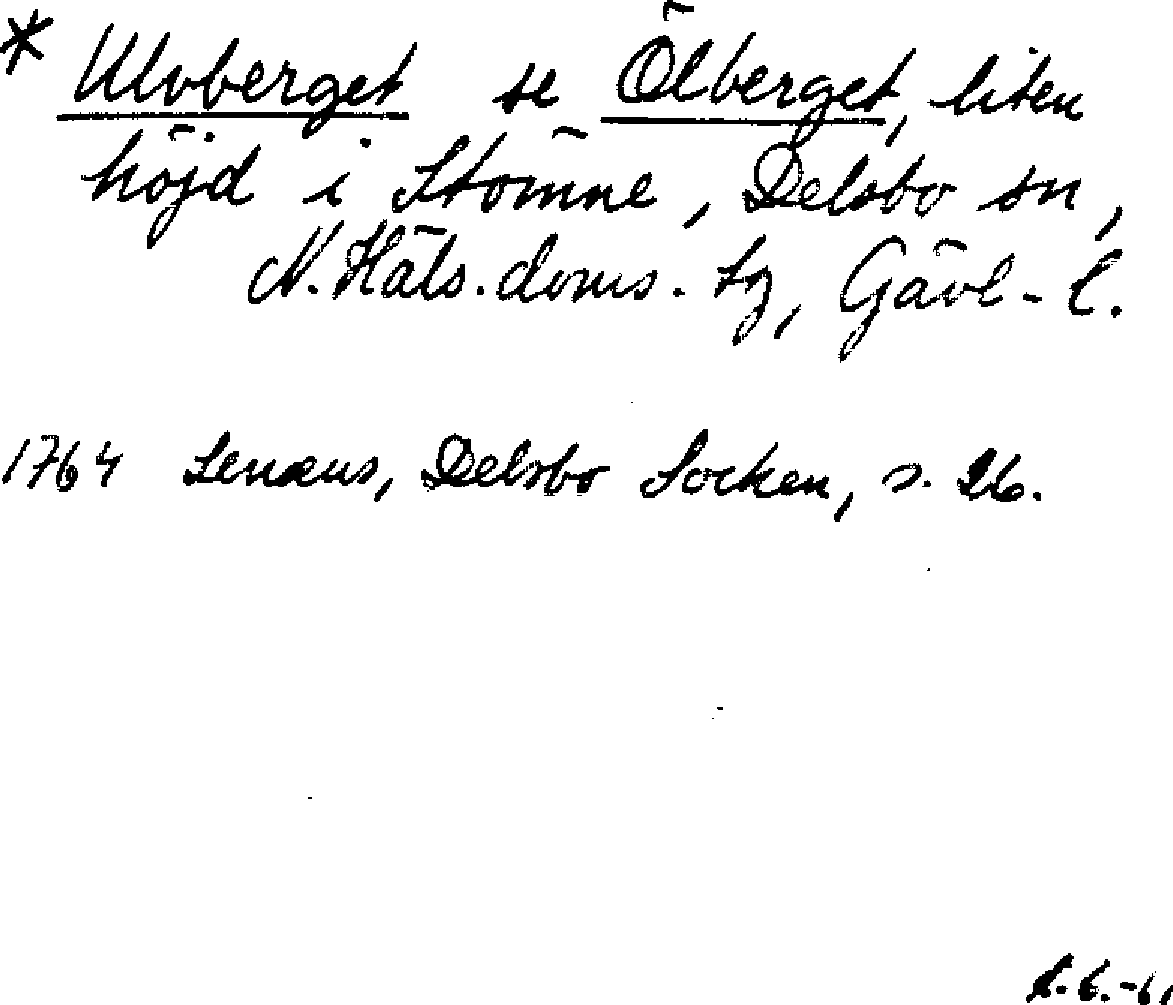 * Ulvberget se Ölberget, liten
höjd i Stömne, Delsbo sn,
N. Häls. doms. tg, Gävl-l.
1764 Lenæus, Delsbo Socken, s. 26.